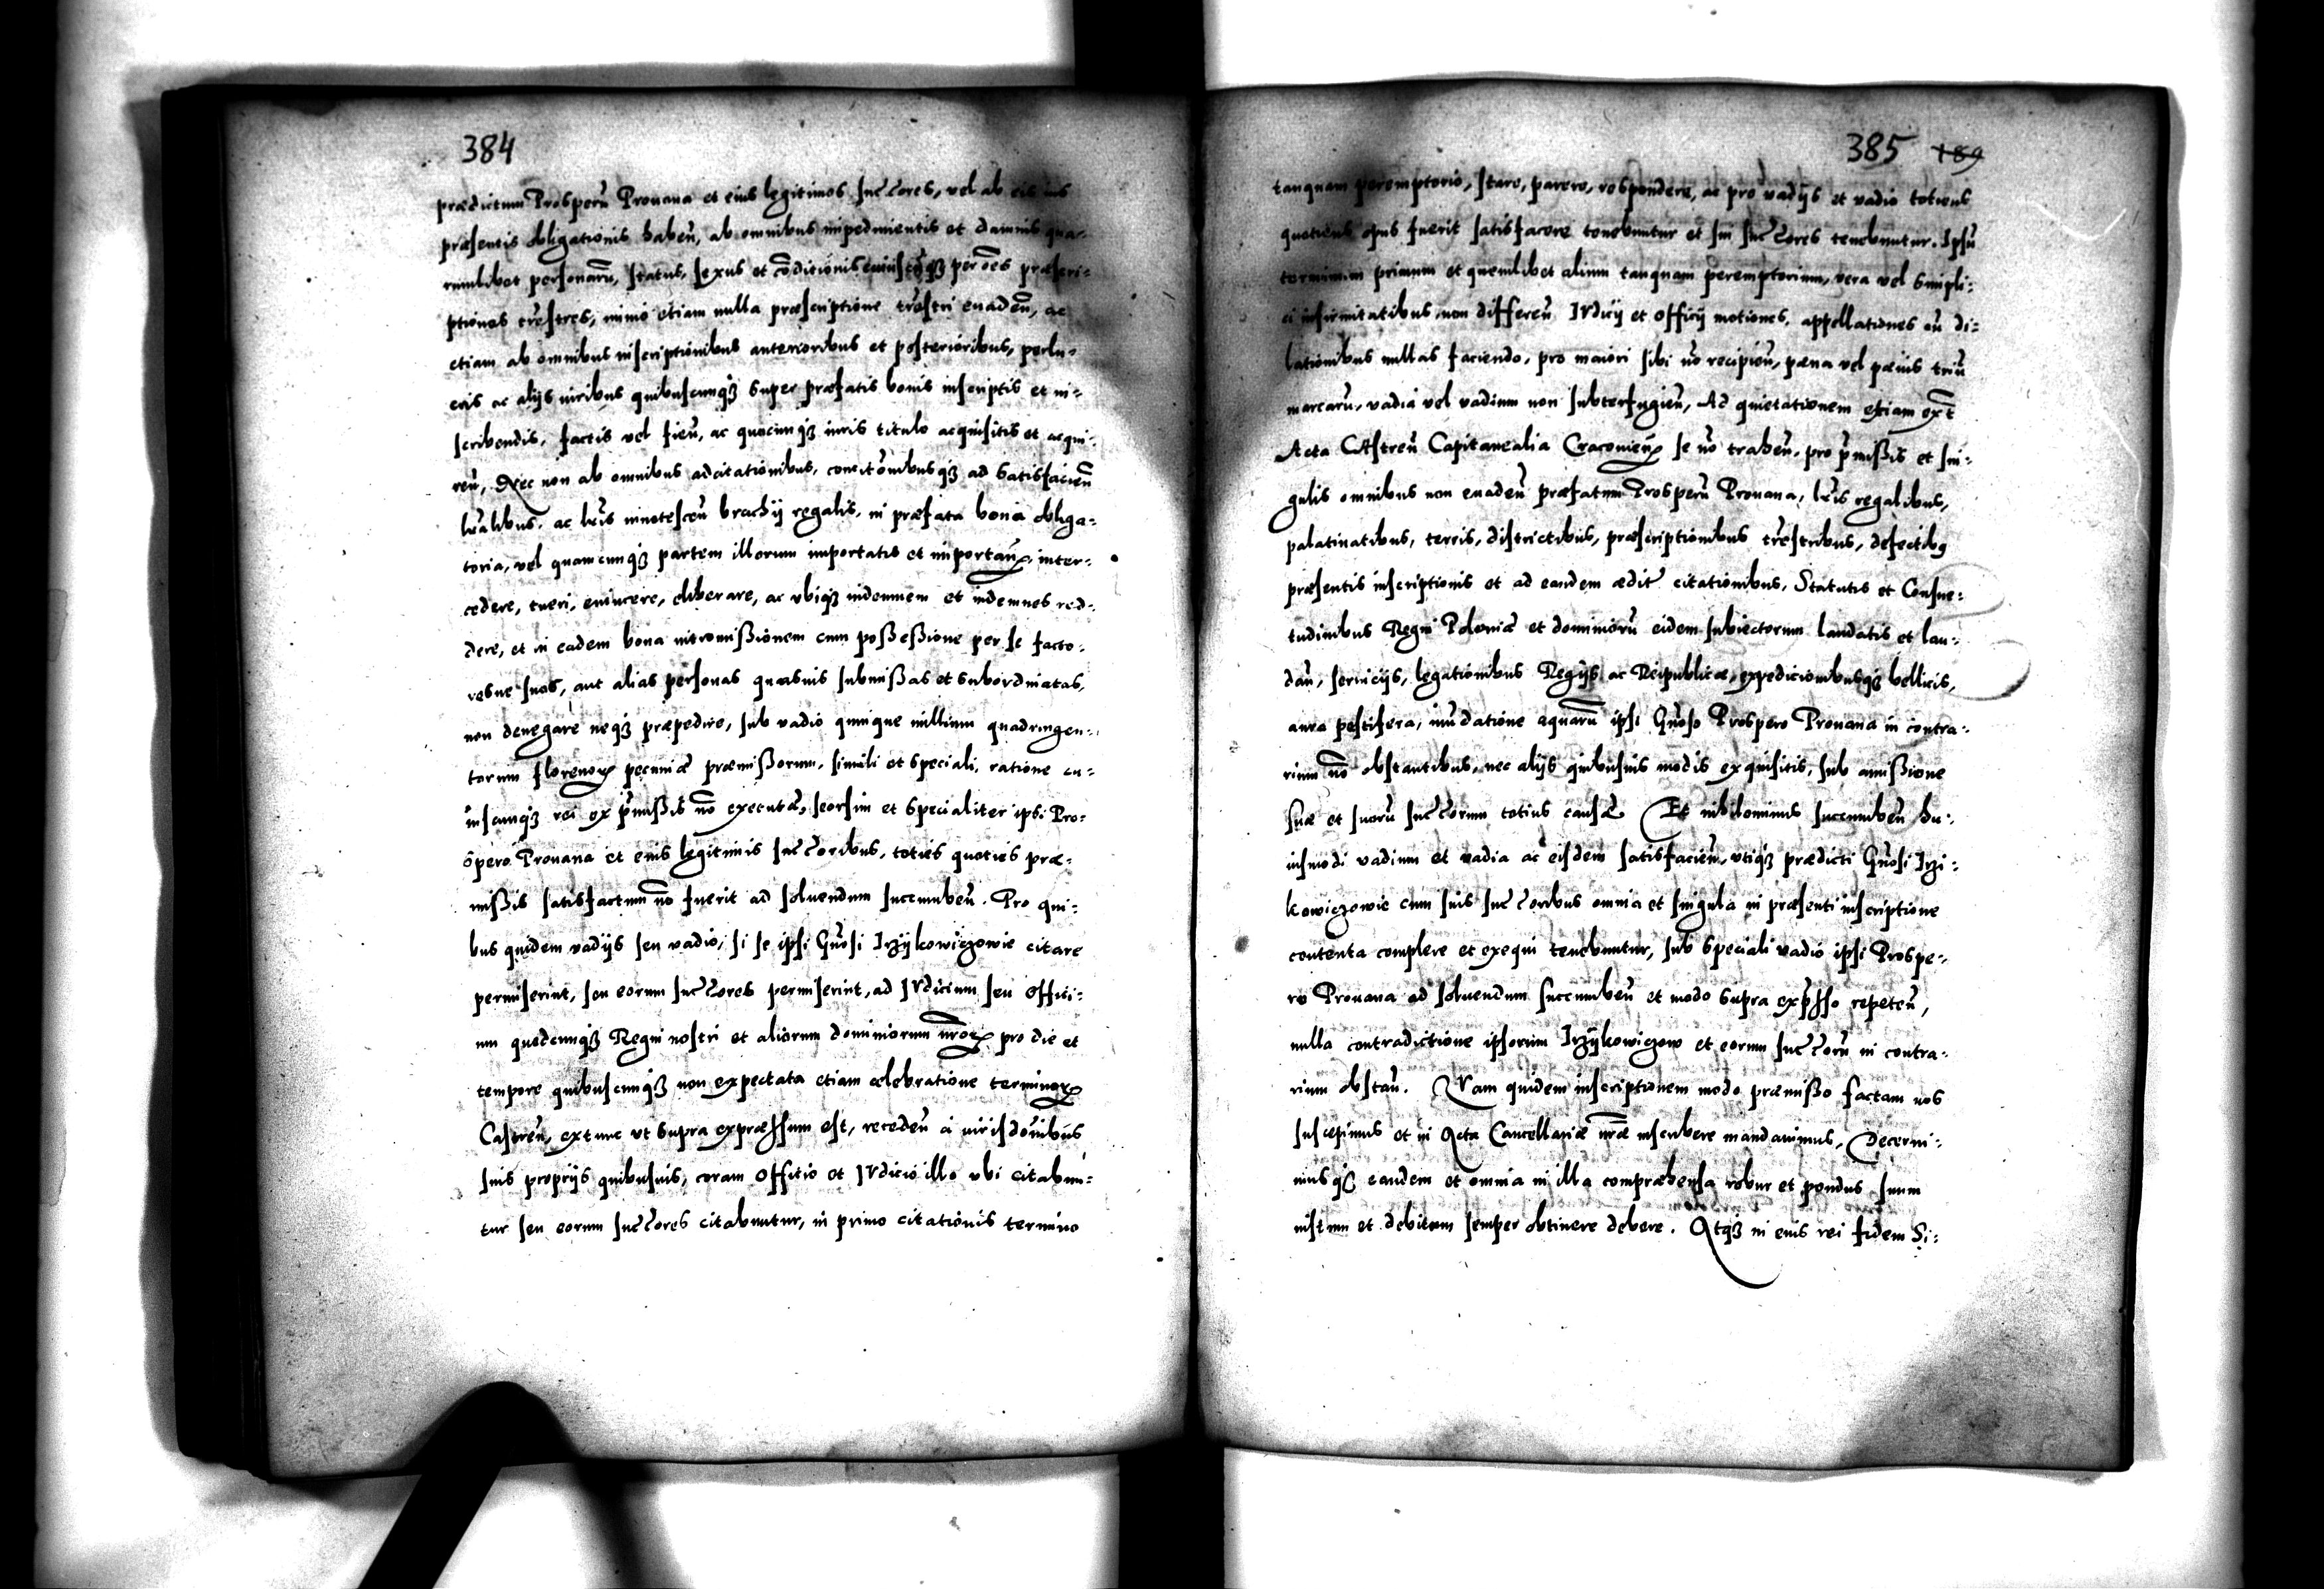 384
prædictum Prosperũ Prouana et eius legitimos succ̃ores, vel ab eis ius
præsentis obligationis habeñ, ab omnibus impedimentis et damnis qua-
rumlibet personarũ, status, sexus et cõditionis cuiuscũqꝫ per oẽs præscri-
ptiones trẽstres, immo etiam nulla præscriptione trẽstri euadeñ, ac
etiam ab omnibus inscriptionibus anterioribus et posterioribus, perlu-
cris ac alijs iuribus quibuscunqꝫ super præfatis bonis inscriptis et in-
scribendis, factis vel fieñ, ac quocunqꝫ iuris titulo acquisitis et acqui-
reñ, Nec non ab omnibus adcitationibus, concitõnibusqꝫ ad satisfacieñ
lr̃alibus, ac lr̃is innotesceñ brachij regalis, in præfata bona obliga-
toria, vel quamcunqꝫ partem illorum importatis et importañ, inter-
cedere, tueri, euincere, eliberare, ac vbiqꝫ indemnem et indemnes red-
dere, et in eadem bona intromißionem cum poßeßione per se facto-
resue suos, aut alias personas quasuis submißas et subordinatas,
non denegare neqꝫ præpedire, sub vadio quinque millium quadringen-
torum florenoꝝ pecuniæ præmißorum, simili et speciali, ratione cu-
iuscunqꝫ rei ex p̃mißis nõ executæ, seorsim et specialiter ipsi Pro-
spero Prouana et eius legitimis succ̃oribus, toties quoties præ-
mißis satisfactum nõ fuerit ad soluendum succumbeñ. Pro qui-
bus quidem vadijs seu vadio, si se ipsi Gñosi Irzÿkowiczowie citare
permiserint, seu eorum succ̃ores permiserint, ad Iudicium seu offici-
um quodcunqꝫ Regni nostri et aliorum dominiorum nr̃oꝝ pro die et
tempore quibuscunqꝫ non expectata etiam celebratione terminoꝝ
Castreñ, extunc vt supra expræssum est, recedeñ à iurisdõnibus
suis proprijs quibusuis, coram officio et Iudicio illo vbi citabun-
tur seu eorum succ̃ores citabuntur, in primo citationis termino
385 189
tanquam peremptorio, stare, parere, respondere, ac pro vadijs et vadio totiens
quotiens opus fuerit satisfacere tenebuntur et sui succ̃ores tenebuntur. Ipsũ
terminum primum et quemlibet alium tanquam peremptorium, vera vel simpli-
ci infirmitatibus non differeñ Iudicij et officij motiones, appellationes eũ di-
lationibus nullas faciendo, pro maiori sibi nõ recipieñ, pæna vel pænis triũ
marcarũ, vadia vel vadium non subterfugieñ, Ad quietationem etiam ext̃
Acta Castreñ Capitanealia Cracouieñ se nõ traheñ, pro p̃mißis et sin-
gulis omnibus non euadeñ præfatum Prosperũ Prouana, lr̃is regalibus,
palatinatibus, terris, districtibus, præscriptionibus trẽstribus, defectibꝫ
præsentis inscriptionis et ad eandem ædit̃ citationibus, Statutis et Consue-
tudinibus Regni Poloniæ et dominiorũ eidem subiectorum laudatis et lau-
dañ, seruicijs, legationibus Regijs ac Reipublicæ, expedicionibusqꝫ bellicis,
aura pestifera, inũdatione aquarũ ipsi Gñoso Prospero Prouana in contra-
rium nõ obstantibus, nec alijs quibusuis modis exquisitis, sub amißione
suæ et suorũ succ̃orum totius causæ. Et nihilominus succumbeñ hu-
iusmodi vadium et vadia ac eisdem satisfacieñ, vtiqꝫ prædicti Gñosi Irzi-
kowiczowie cum suis succ̃oribus omnia et singula in præsenti inscriptione
contenta complere et exequi tenebuntur, sub speciali vadio ipsi Prospe-
ro Prouana ad soluendum succumbeñ et modo supra exp̃sso repeteñ,
nulla contradictione ipsorum Irzÿkowiczow et eorum succ̃orũ in contra-
rium obstañ. Quam quidem inscriptionem modo præmißo factam nos
suscepimus et in Acta Cancellariæ nr̃æ inscribere mandauimus, Decerni-
musqꝫ eandem et omnia in illa compræhensa robur et pondus suum
iustum et debitum semper obtinere debere. Atqꝫ in eius rei fidem Si-